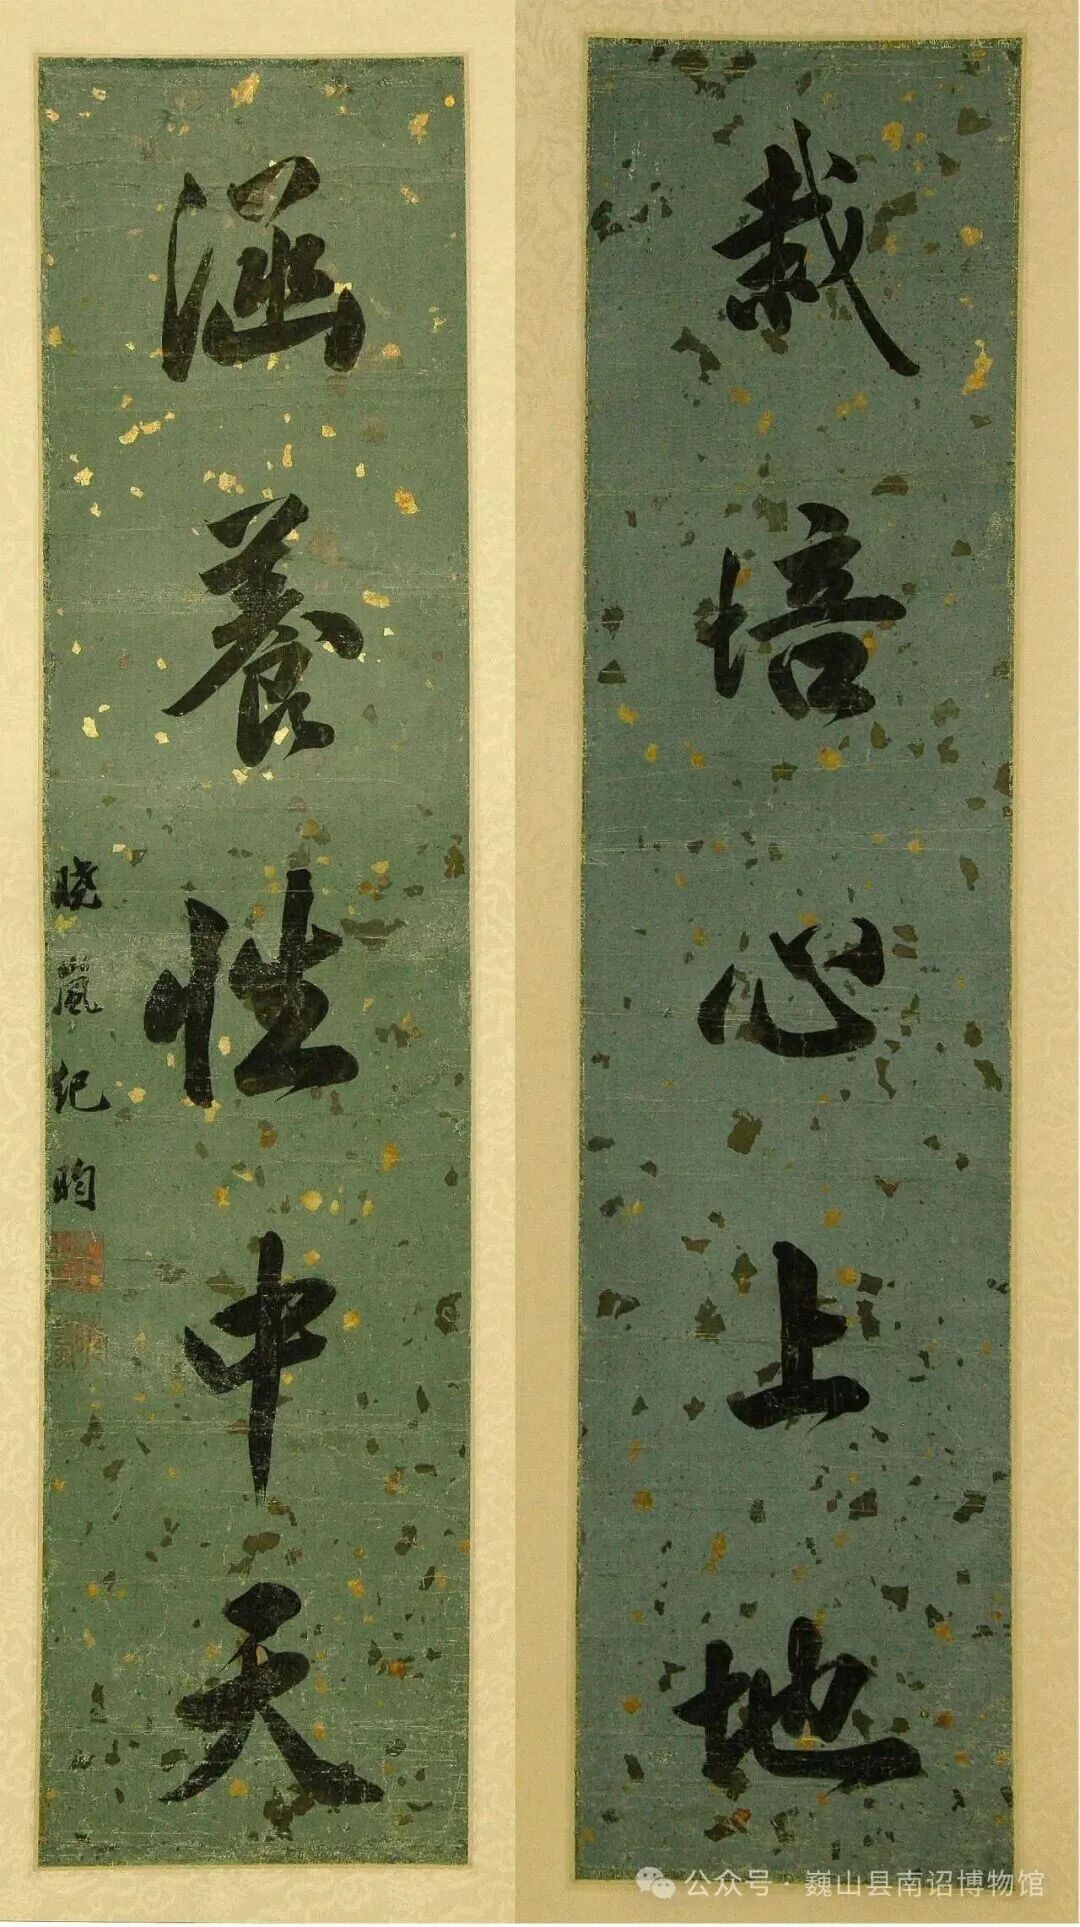 栽培心上地
涵養性中天
晓嵐纪昀
公众号·巍山县南诏博物馆